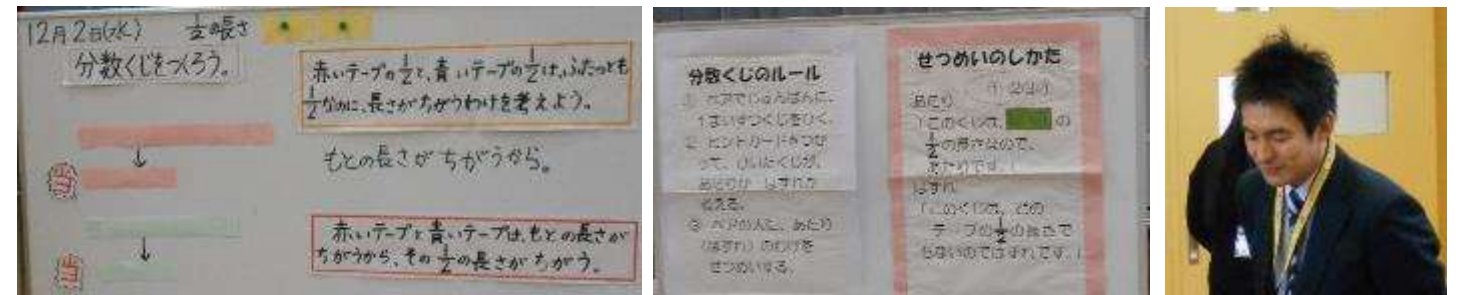 12月2日(水) 1/2の長さ
分数くじをつくろう。
赤いテープの1/2と、青いテープの1/2は、ふたつとも
1/2なのに、長さがちがうわけを考えよう。
当
もとの長さがちがうから。
当
赤いテープと青いテープは、もとの長さが
ちがうから、その1/2の長さがちがう。
分数くじのルール
① ペアでじゅんばんに、
1まいずつくじをひく。
② ヒントカードをつか
って、ひいたくじが、
あたりか はずれか
考える。
③ ペアの人に、あたり
(はずれ)のわけを
せつめいする。
せつめいのしかた
あたり
「このくじは、 の
1/2の長さなので、
あたりです。」
はずれ
「このくじは、どの
テープの1/2の長さで
もないのではずれです。」